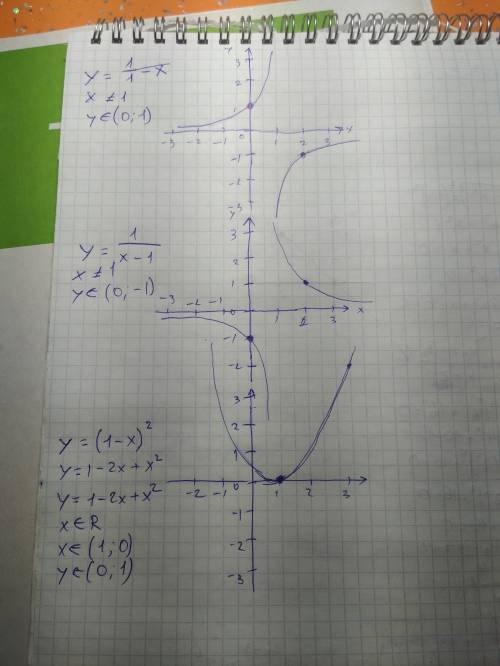 y = 1/(1-x)
x ≠ 1
y ∈ (0; 1)
3
2
1
-3 -2 -1 0 1 2 3 x
-1
-2
-3
y
y = 1/(x-1)
x ≠ 1
y ∈ (0; -1)
3
2
1
-3 -2 -1 0 1 2 3 x
-1
-2
y = (1-x)²
y = 1-2x+x²
y = 1-2x+x²
x ∈ R
x ∈ (1; 0)
y ∈ (0; 1)
3
2
1
-2 -1 0 1 2 3
-1
-2
-3